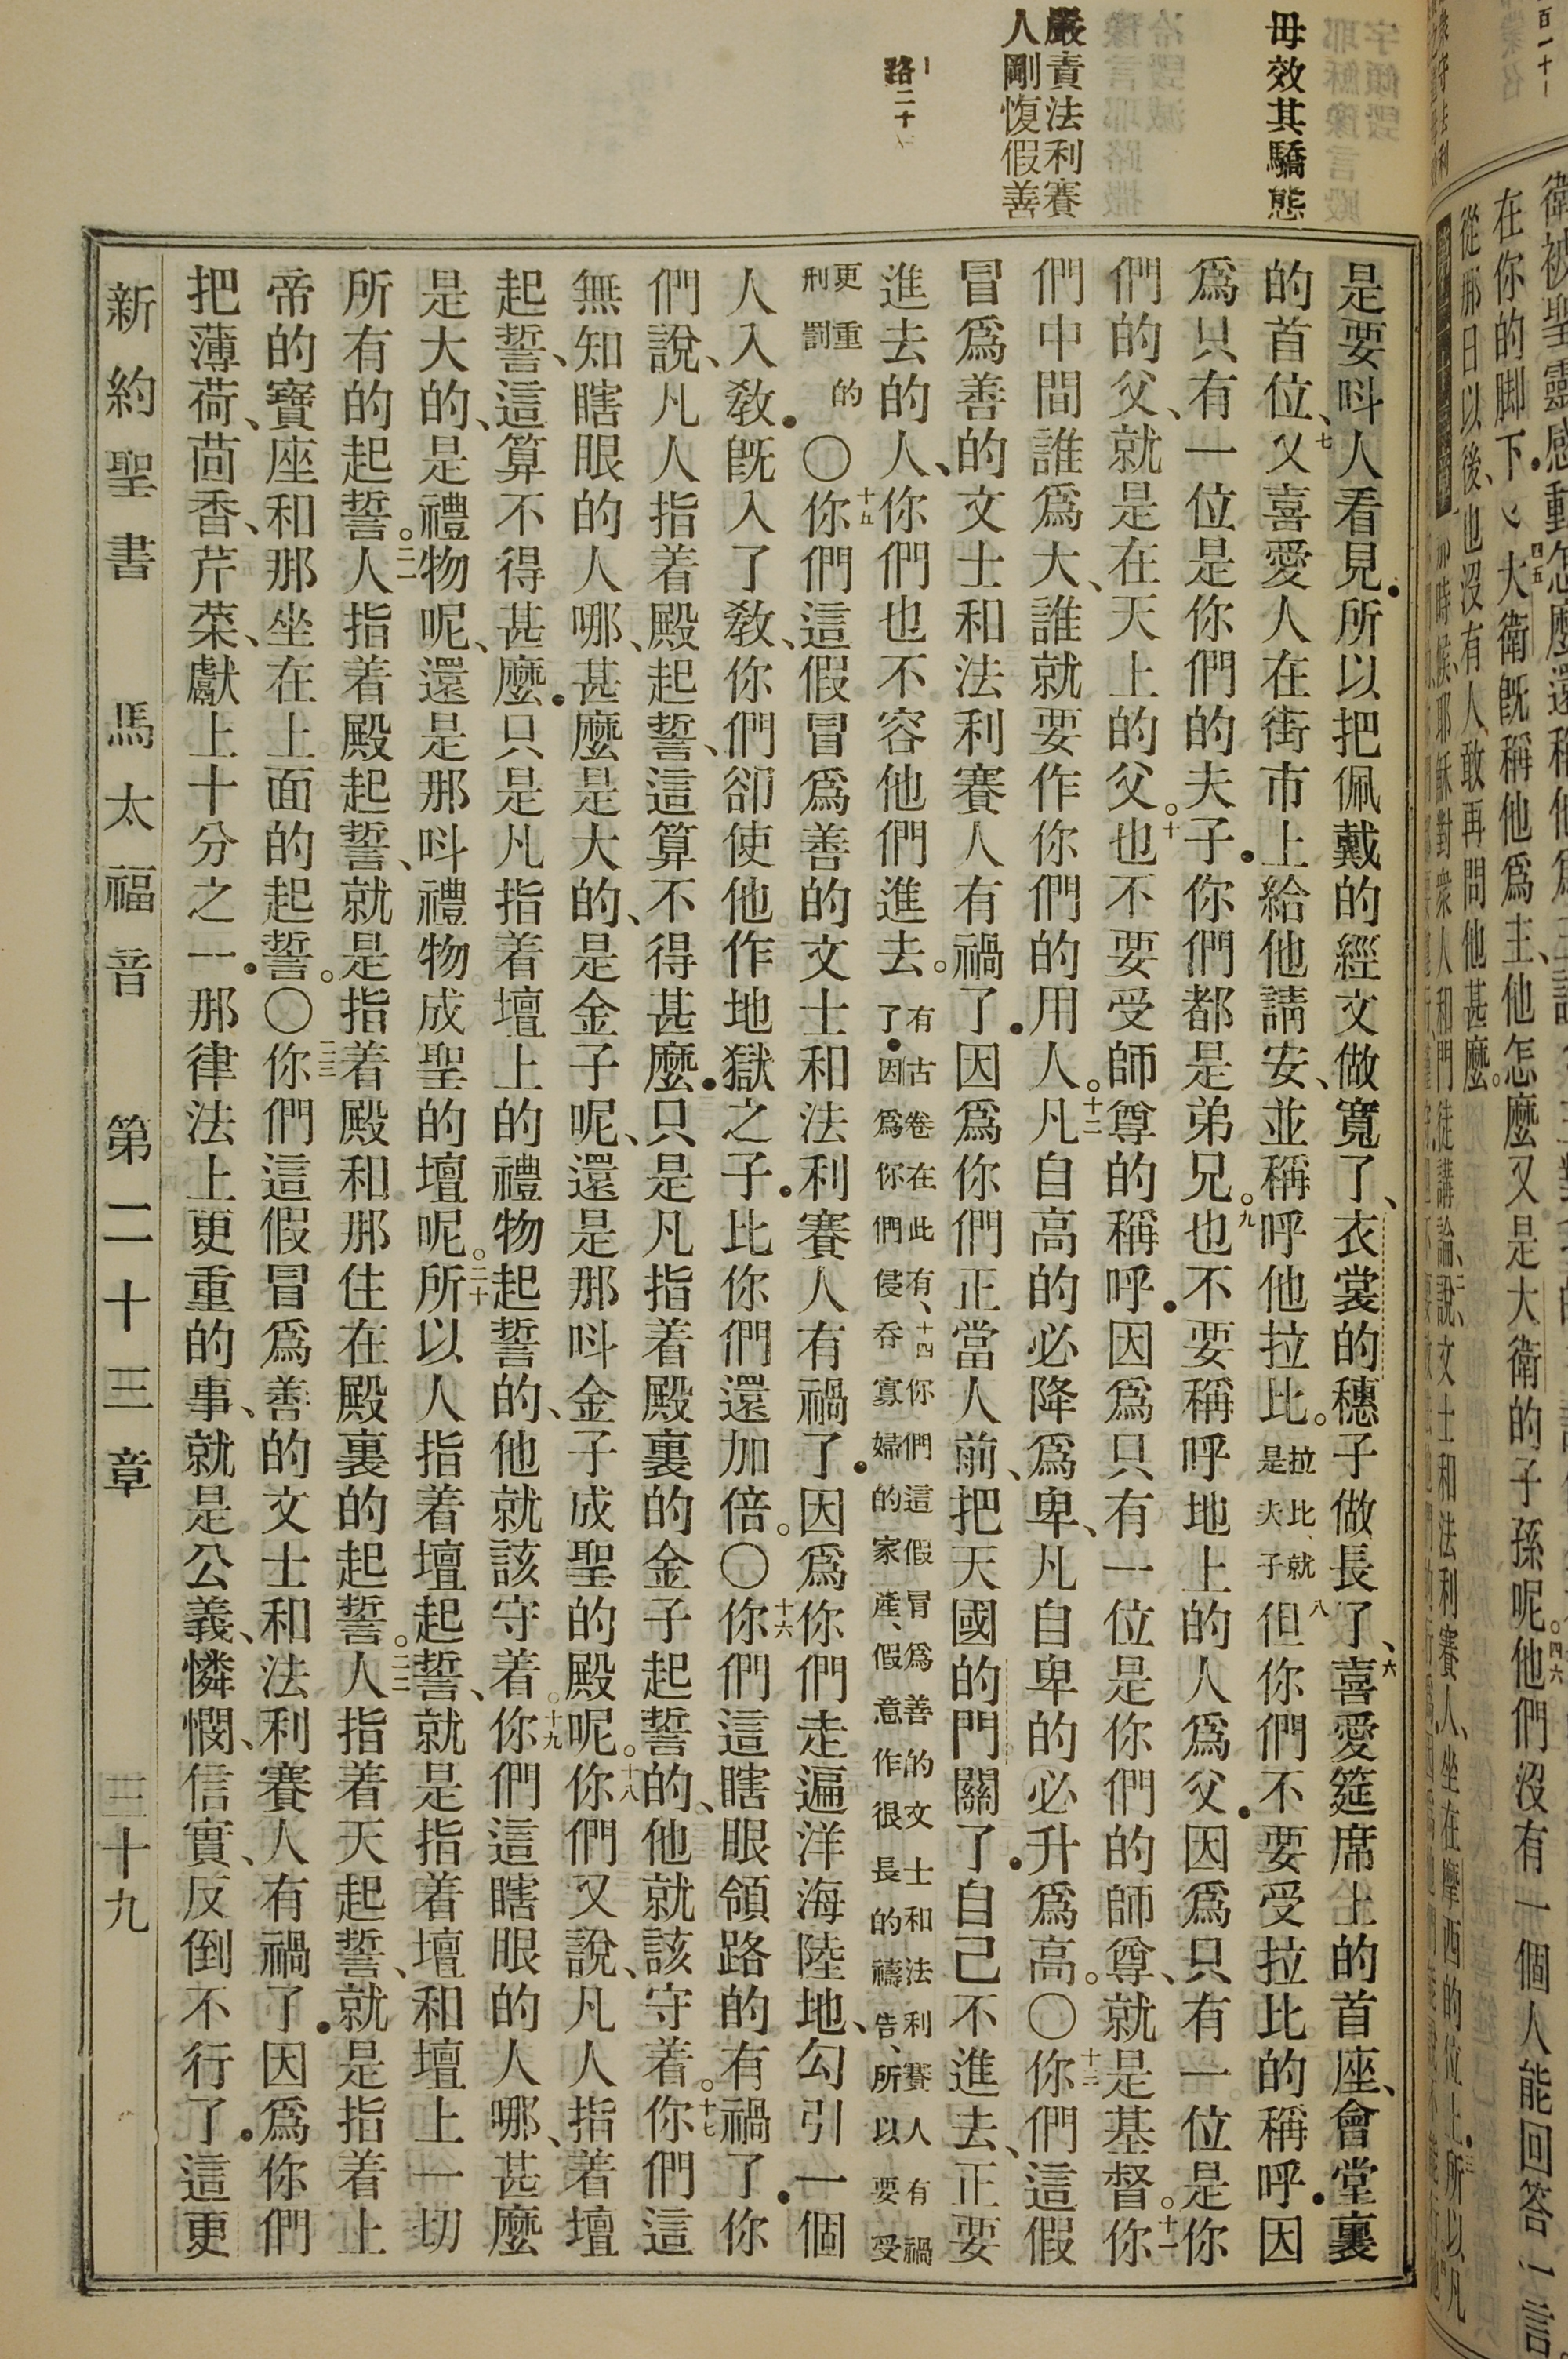 毋效其驕態
嚴責法利賽
人剛愎假善
路二十
是要呌人看見．所以把佩戴的經文做寬了、衣裳的穗子做長了、六喜愛筵席上的首座、會堂裏
的首位、七又喜愛人在街市上給他請安、並稱呼他拉比。拉比、就是夫子八但你們不要受拉比的稱呼．因
爲只有一位是你們的夫子．你們都是弟兄。九也不要稱呼地上的人爲父．因爲只有一位是你
們的父、就是在天上的父。十也不要受師尊的稱呼．因爲只有一位是你們的師尊、就是基督。十一你
們中間誰爲大、誰就要作你們的用人。十二凡自高的必降爲卑、凡自卑的必升爲高。〇十三你們這假
冒爲善的文士和法利賽人有禍了．因爲你們正當人前、把天國的門關了．自己不進去、正要
進去的人、你們也不容他們進去。有古卷在此有、十四你們這假冒爲善的文士和法利賽人有禍了．因爲你們侵吞寡婦的家產、假意作很長的禱告、所以要受
更重的刑罰〇十五你們這假冒爲善的文士和法利賽人有禍了．因爲你們走遍洋海陸地、勾引一個
人入敎．旣入了敎、你們卻使他作地獄之子．比你們還加倍。〇十六你們這瞎眼領路的有禍了．你
們說、凡人指着殿起誓、這算不得甚麼．只是凡指着殿裏的金子起誓的、他就該守着。十七你們這
無知瞎眼的人哪、甚麼是大的、是金子呢、還是那呌金子成聖的殿呢。十八你們又說、凡人指着壇
起誓、這算不得甚麼．只是凡指着壇上的禮物起誓的、他就該守着。十九你們這瞎眼的人哪、甚麼
是大的、是禮物呢、還是那呌禮物成聖的壇呢。二十所以人指着壇起誓、就是指着壇和壇上一切
所有的起誓。二一人指着殿起誓、就是指着殿和那住在殿裏的起誓。二二人指着天起誓、就是指着上
帝的寶座和那坐在上面的起誓。〇二三你們這假冒爲善的文士和法利賽人有禍了．因爲你們
把薄荷、茴香、芹菜、獻上十分之一．那律法上更重的事、就是公義、憐憫、信實、反倒不行了．這更
新約聖書 馬太福音 第二十三章 三十九